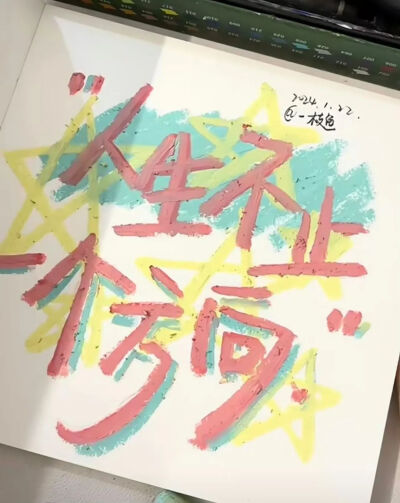 2024.1.22.
@一枝鱼
"人生不止
一个方向"